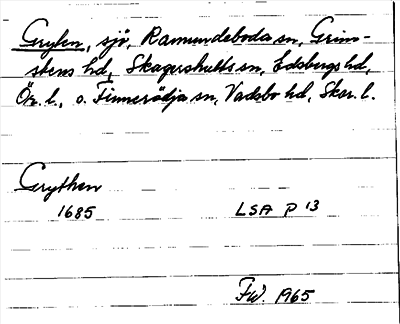 Gryten, sjö, Ramundeboda sn, Grim-
stens hd, Skagershults sn, Edsbergs hd,
Ör. l., o. Finnerödja sn, Vadsbo hd, Skar. l.
Grythen
1685 LSA P 13
FW. 1965